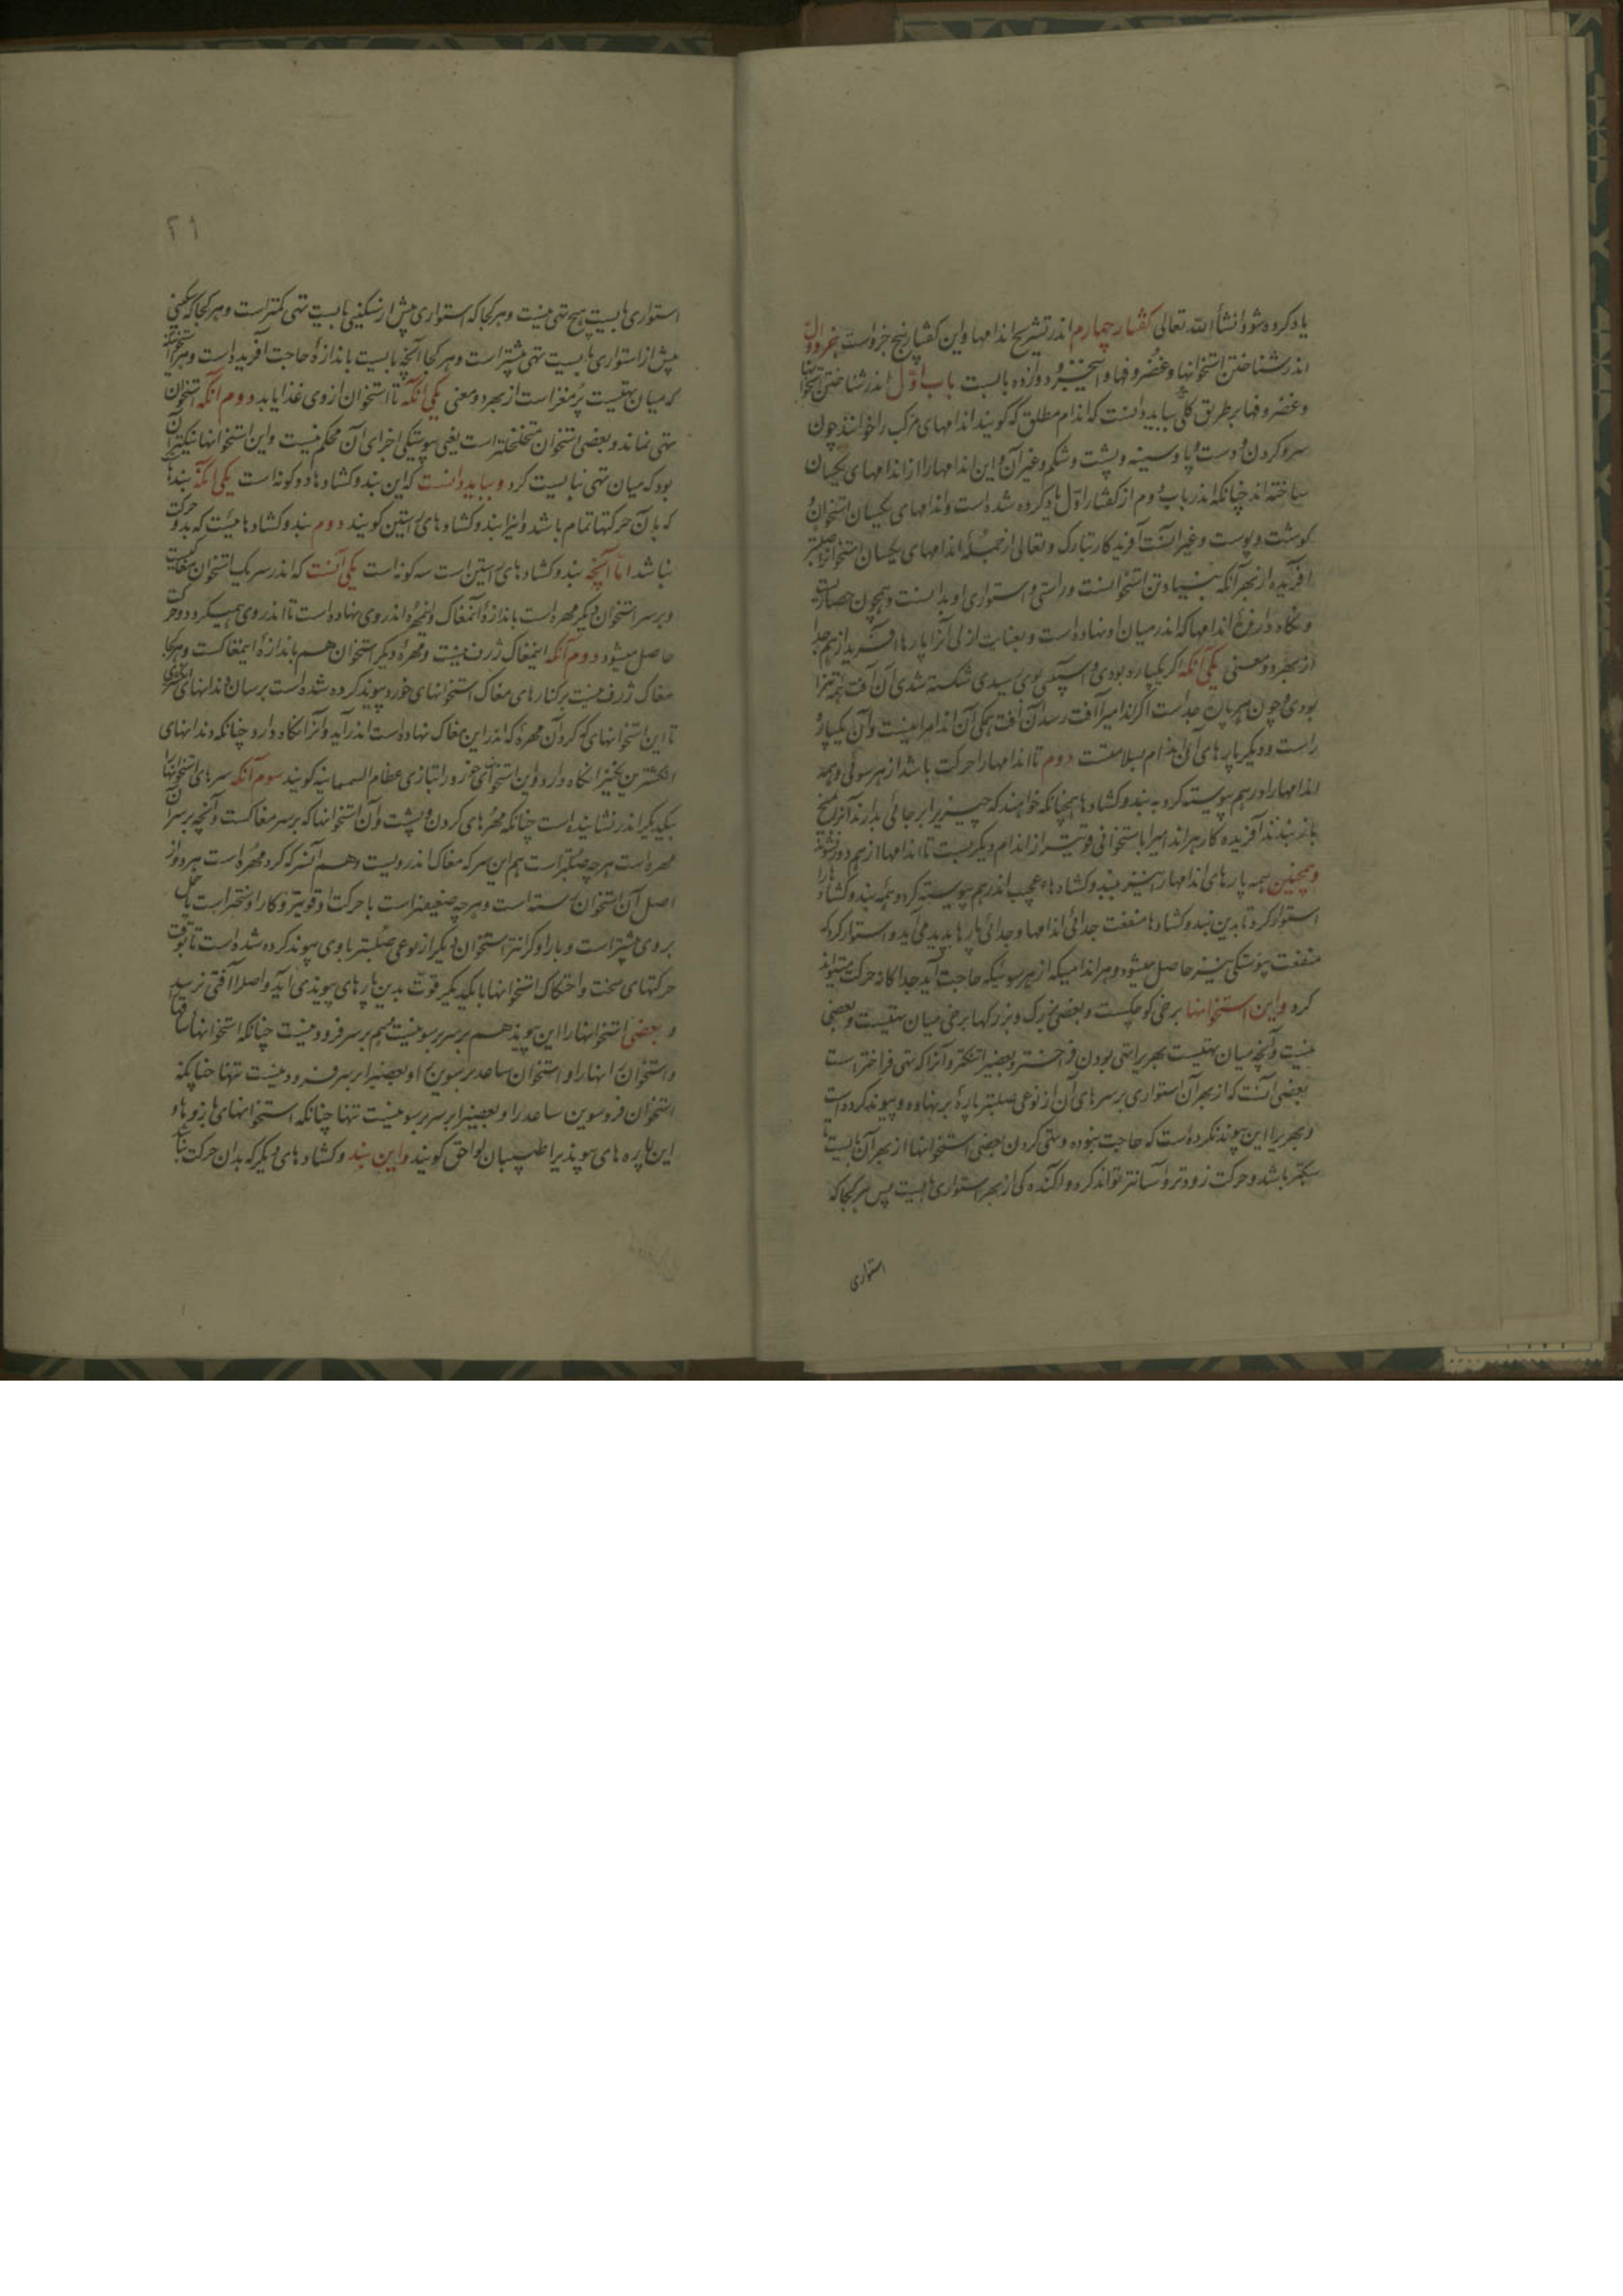 یاد کرده شود انشأ الله تعالی گفتار چهارم اندر تشریح اندامها و این گفتار پنج جزو است جزو اول
اندر شناختن استخوانها و غضروفها و این جزو دوازده بابست باب اول اندر شناختن استخوانها
و غضروفها بر طریق کلی بباید دانست که اندام مطلق که گویند اندامهای مرکب را خوانند چون
سر و گردن و دست و پا و سینه و پشت و شکم و غیر آن و این اندامها را از اندامهای یکسان
ساخته اند چنانکه اندر باب دوم از گفتار اول یاد کرده شده است و اندامهای یکسان استخوان و
گوشت و پوست و غیر آنست آفریدگار تبارک و تعالی از جمله اندامهای یکسان استخوان را صلبتر
آفریده از بهر آنکه بنیاد تن استخوانست و راستی و استواری او بدانست و همچون حصاریست
و نگاه دارنده اندامها که اندر میان او نهاده است و بعنایت ازلی آنرا پارها آفرید از هم جدا
از بهر دو معنی یکی آنکه اگر یکپاره بودی و آسیبی بوی رسیدی شکسته شدی آن آفت همه تن را
بودی و چون هر پاره جداست اگر اندامی را آفت رسد آن آفت همگی آن اندام را نیست و آن یکپاره
راست و دیگر پارهای آن اندام بسلامتست دوم تا اندامها را حرکت باشد از هر سوئی و همه
اندامها را در هم پیوسته کرد به بند و کشادها همچنانکه خواهند که چیزی را بر جائی بدارند آنرا بمیخ
باز بندند آفریده کار هر اندامی را با ستخوانی قویتر از اندام دیگر ببست تا اندامها از هم دور نشوند
و همچنین همه پارهای اندامها را نیز ببند و کشادهاء عجب اندر هم پیوسته کرد و همه بند و کشادها را
استوار کرد تا بدین بند و کشادها منفعت جدائی اندامها و جدائی پارها پدید می آید و استوار کرد که
منفعت پیوستگی نیز حاصل میشود و هر اندامیکه از هر سوئیکه حاجت آید جداگانه حرکت میتواند
کرد و این استخوانها برخی کوچکست و بعضی بزرگ و بزرگها برخی میان تهیست و بعضی
نیست و آنچه میان تهیست بهریرا تهی بودن فراختر و بعضیرا تنگتر و آنرا که تهی فراختر است
بعضی آنست که از بهر آن استواری بر سرهای آن از نوعی صلبتر پارهٔ بر نهاده و پیوند کرده است
و بهریرا این پیوند نکرده است که حاجت نبوده و تهی کردن بعضی استخوانها از بهر آن بایست تا
سبکتر باشد و حرکت زودتر و آسانتر تواند کرد و آکندگی از بهر استواری بایست پس هر کجا که
استواری
۲۱
استواری بایست هیچ تهی نیست و هر کجا که استواری بیش از سبکی بایست تهی کمتر است و هر کجا که سبکی
بیش از استواری بایست تهی بیشتر است و هر کجا آنچه بایست باندازهٔ حاجت آفریده است و هر استخوانی
که میان تهیست پر مغز است از بهر دو معنی یکی آنکه تا استخوان از وی غذا یابد دوم آنکه استخوان
تهی نماند و بعضی استخوان متخلخلتر است یعنی پیوستگی اجزای آن محکم نیست و این استخوانها نیکتر آن
بود که میان تهی نبایست کرد و بباید دانست که این بند و کشادها دو گونه است یکی آنکه بندها
که بآن حرکتها تمام باشد و آنرا بند و کشادهای راستین گویند دوم بند و کشادهائیست که بدو حرکت
نباشد اما آنچه بند و کشادهای راستین است سه گونه است یکی آنست که اندر سر یک استخوان مغاکیست
و بر سر استخوان دیگر مهره است باندازهٔ آنمغاک و آنمهره اندر وی نهاده است تا اندر وی همیگردد و حرکت
حاصل میشود دوم آنکه اینمغاک ژرف نیست و مهرهٔ دیگر استخوان هم باندازهٔ اینمغاکست و هر کجا
مغاک ژرف نیست بر کنارهای مغاک استخوانهای خورد پیوند کرده شده است بر سان دندانهای انگشتری
تا این استخوانهای گرد کرد آن مهرهٔ که اندر این مغاک نهاده است اندر آید و آنرا نگاه دارد چنانکه دندانهای
انگشترین نگین را نگاه دارد و این استخوانهای خورد را بتازی عظام السمسمانیه گویند سوم آنکه سرهای استخوانها
بیکدیگر اندر نشانیده است چنانکه مهرهای گردن و پشت و آن استخوانها که بر سر مغاکست و آنچه بر سر آن
مهره است هر چه صلبتر است هم این سر که مغاک اندرویست و هم آنسر که گرد مهره است هر دو از
اصل آن استخوان رسته است و هر چه ضعیفتر است با حرکت او قویتر و کار او سختر است یا ثقل
بر وی بیشتر است و بار او گرانتر استخوان دیگر از نوعی صلبتر با وی پیوند کرده شده است تا بوقت
حرکتهای سخت و احتکاک استخوانها با یکدیگر قوت بدین پارهای پیوندی آید و اصل را آفتی نرسد
و بعضی استخوانها را این پیوند هم بر سر برسو نیست هم بر سر فرود نیست چنانکه استخوانها ساقها
و استخوان رانها را و استخوان ساعد برسوین و بعضیرا بر سر فرود نیست تنها چنانکه
استخوان فروسوین ساعد را و بعضیرا بر سر برسو نیست تنها چنانکه استخوانهای بازوها و
این پاره های پیوندیرا طبیبان لواحق گویند و این بند و کشادهای دیگر که بدان حرکت نباشد